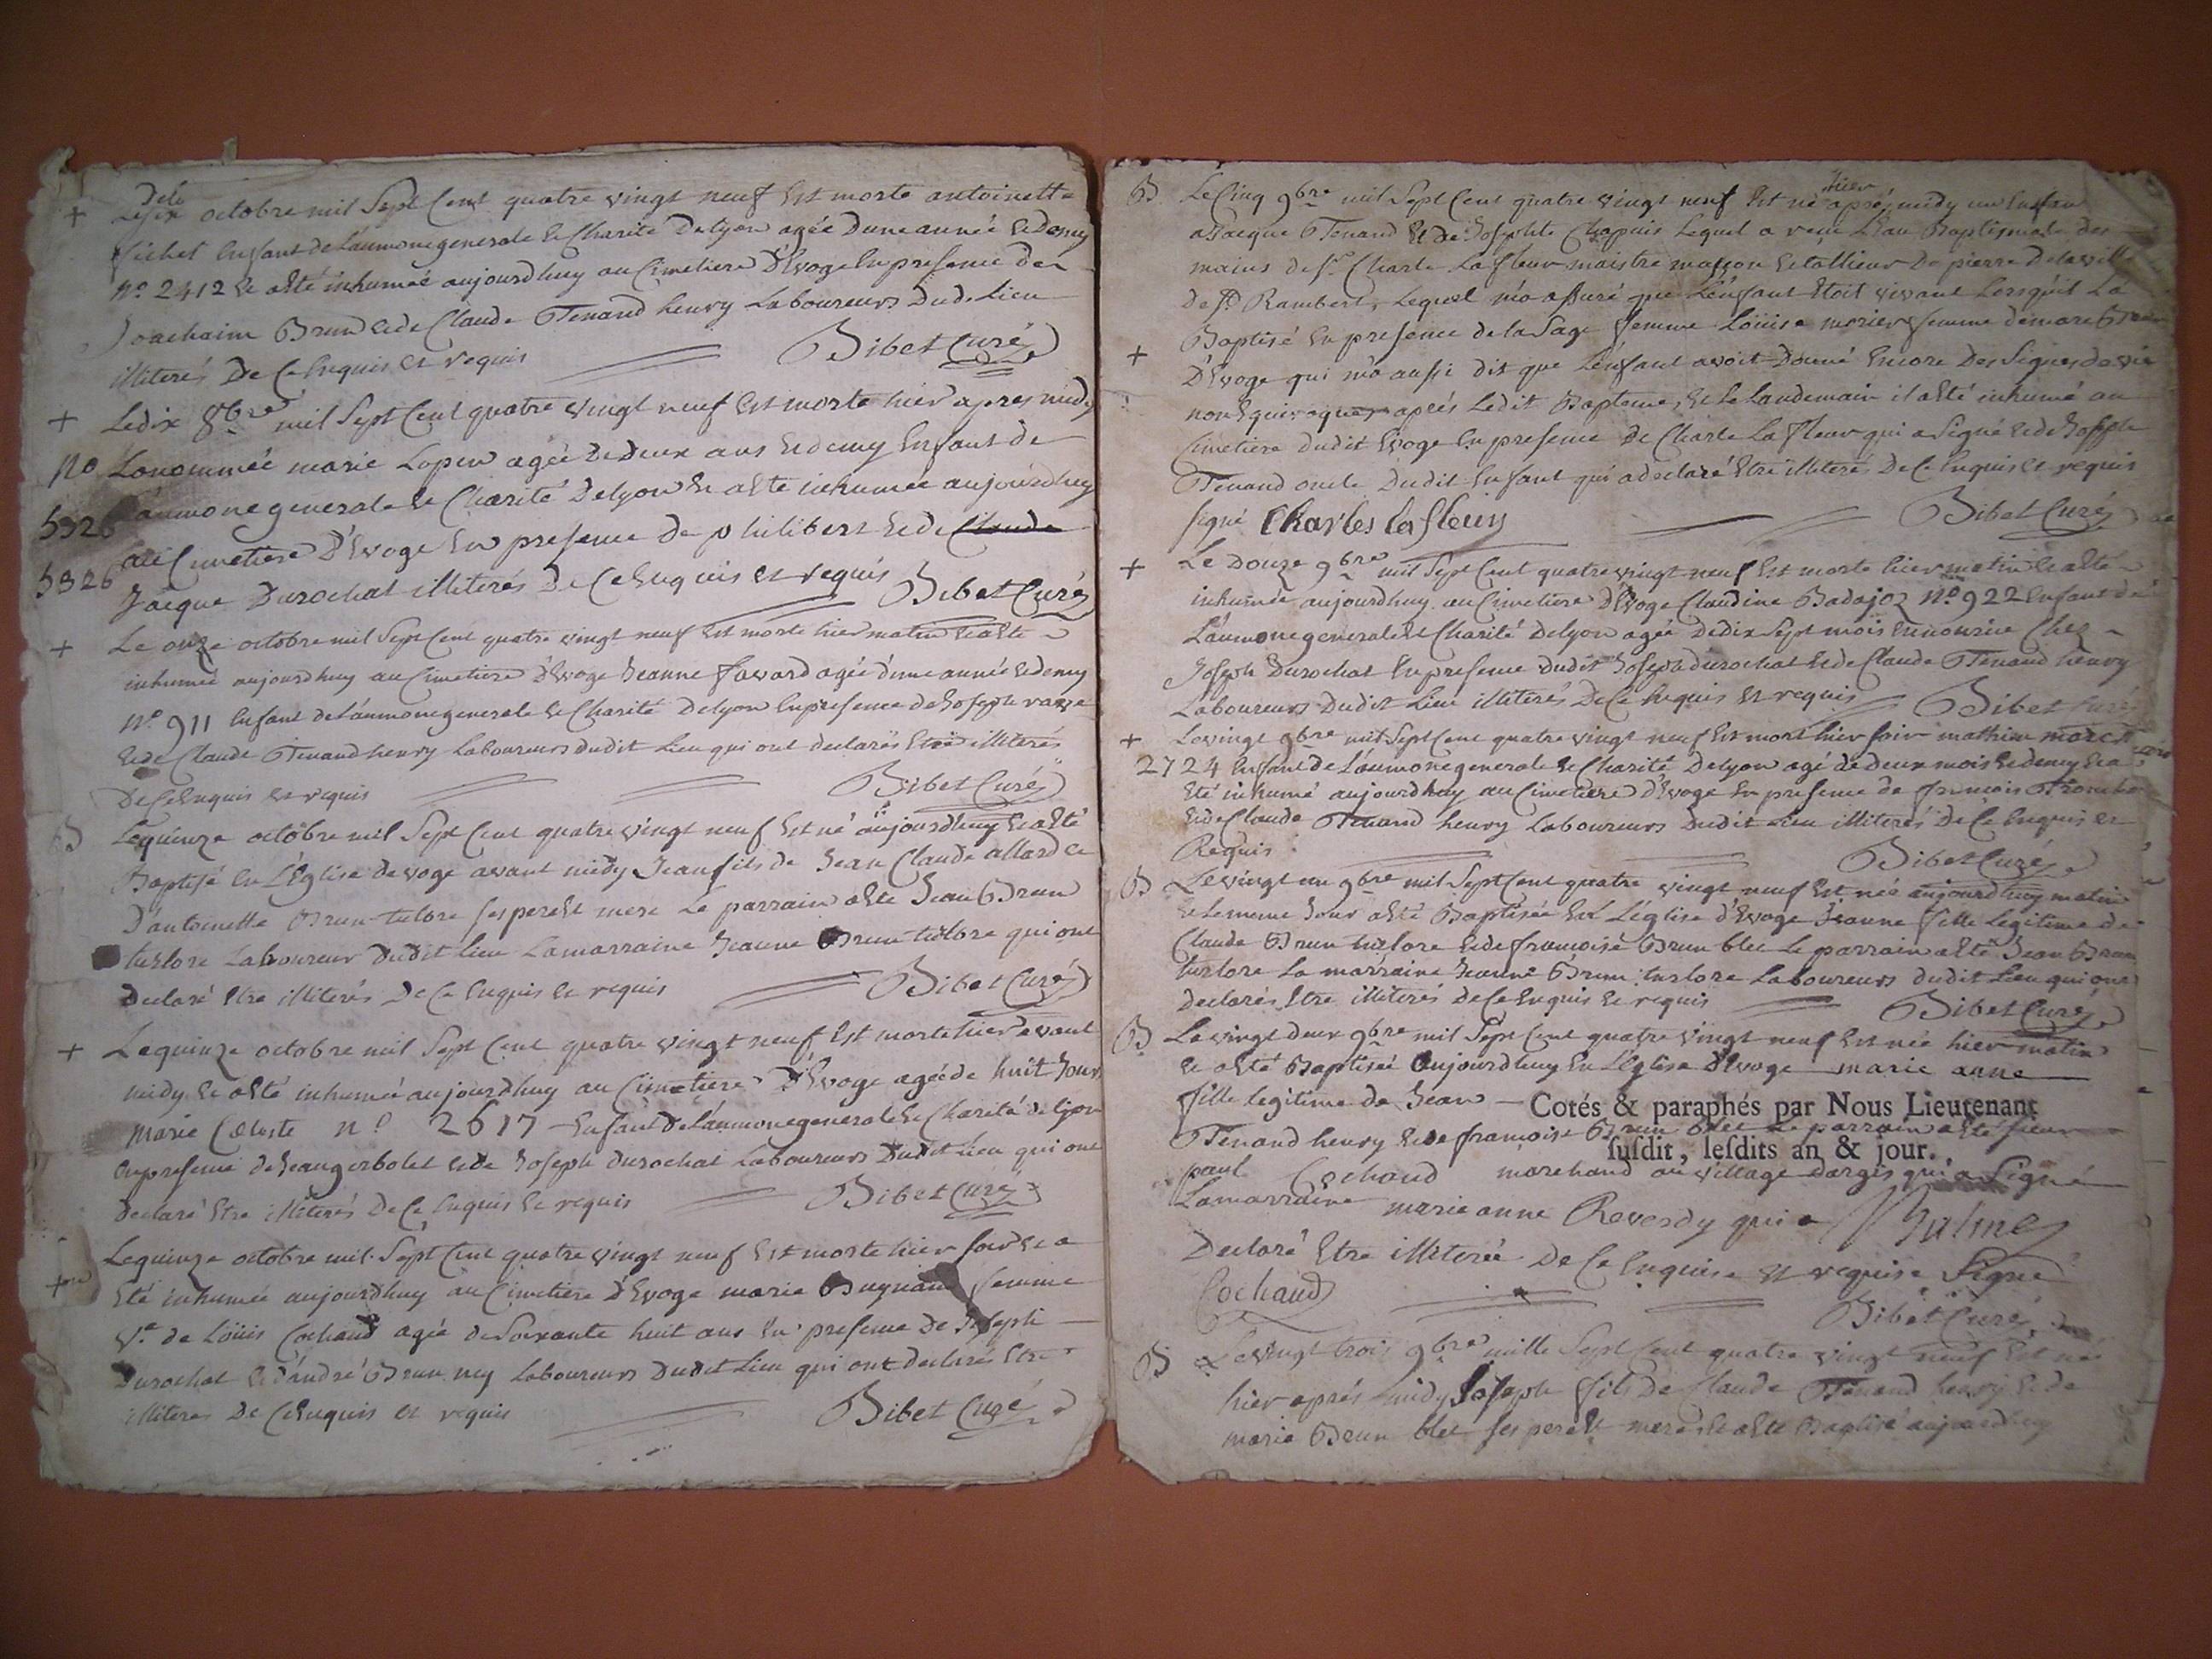 + Le six octobre mil Sept Cent quatre vingt neuf Est morte antoinette
Enfant de L'aumone generale Et Charité De lyon agée D'une année Et demy
No. 2412 Et a Eté inhumée aujourdhuy au Cimetiere D'Evoge En presence de
Joachaim Brun Et de Claude Tenand henry Laboureurs Dud. Lieu
illiterés De Ce Enquis Et requis Bibet Curé
+ Le dix 8bre mil Sept Cent quatre vingt neuf Est morte hier apres midy
No Lanommée marie Lopin agée De Deux ans Et demy Enfant de
5326 L'aumone generale Et Charité De lyon Et a Eté inhumée aujourdhuy
au Cimetiere D'Evoge En presence de philibert Et de Claude
5326 Jacque Durochat illiterés De Ce Enquis Et requis Bibet Curé
+ Le onze octobre mil Sept Cent quatre vingt neuf Est morte hier matin Et a Eté
inhumée aujourdhuy au Cimetiere D'Evoge Jeanne favard agée d'une année Et demy
No. 911 Enfant de L'aumone generale Et Charité De lyon En presence de Joseph
Et de Claude Tenand henry Laboureurs dudit Lieu qui ont declarés Etre illiterés
De Ce Enquis Et requis Bibet Curé
B Le quinze octobre mil Sept Cent quatre vingt neuf Est né aujourdhuy Et a Eté
Baptisé En L'Eglise devoge avant midy Jean fils de Jean Claude allard Et
D'antoinette Brun tuslore Ses pere Et mere Le parrain a Eté Jean Brun
tuslore Laboureur dudit lieu La marraine Jeanne Brun tuslore qui ont
declaré Etre illiterés De Ce Enquis Et requis Bibet Curé
+ Le quinze octobre mil Sept Cent quatre vingt neuf Est morte hier avant
midy Et a Eté inhumé aujourdhuy au Cimetiere D'Evoge agée de huit Jours
Marie Celeste no 2617 Enfant De L'aumone generale Et Charité de lyon
En presence de Jean gerbolet Et de Joseph Durochat Laboureurs Dudit Lieu qui ont
declaré Etre illiterés De Ce Enquis Et requis Bibet Curé
+ Le quinze octobre mil Sept Cent quatre vingt neuf Est morte hier soir Et a
Eté inhumée aujourdhuy au Cimetiere D'Evoge marie Bugniand femme
Ve de Loüis Cochaud agée de Soixante huit ans En presence De Joseph
Durochat Et d'andré Brun ney Laboureurs Dudit Lieu qui ont declarés Etre
illiteres De Ce Enquis Et requis Bibet Curé
B Le Cinq 9bre mil Sept Cent quatre vingt neuf Est né hier aprés midy un Enfant
a Jacque Tenand Et De Josephte Chapuis Lequel a reçu L'Eau Baptismale des
mains de Sr Charle La fleur maistre masson Et tallieur De pierre De la ville
de St. Rambert, Lequel m'a assuré que L'enfant Etoit vivant Lorsquil La
Baptisé En presence de la Sage femme Loüise morier femme de marc Brun
+ D'Evoge qui m'a aussi dit que L'enfant avoit Donné Encore Des Signes de vie
non Equivoques aprés Ledit Bapteme, Et Le Landemain il a Eté inhumé au
Cimetiere dudit Evoge En presence De Charle La fleur qui a Signé Et de Joseph
Tenand oncle Dudit Enfant qui a declaré Etre illiteré De Ce Enquis Et requis
signé Charles Lafleur Bibet Curé
+ Le Douze 9bre mil Sept Cent quatre vingt neuf Est morte hier matin Et a Eté
inhumée aujourdhuy au Cimetiere D'Evoge Claudine Badajoz No. 922 Enfant de
L'aumone generale Et Charité De lyon agée De dix Sept mois En nourice Chez
Joseph Durochat En presence dudit Joseph durochat Et de Claude Tenand henry
Laboureurs Dudit Lieu illiterés De Ce Enquis Et requis Bibet Curé
+ Le vingt 9bre mil Sept Cent quatre vingt neuf Est mort hier soir mathieu
2724 Enfant de L'aumone generale Et Charité De lyon agé de Deux mois Et demy Et a
Eté inhumé aujourdhuy au Cimetiere D'Evoge En presence de francois
Et de Claude Tenand henry Laboureurs Dudit Lieu illiterés De Ce Enquis Et
Requis Bibet Curé
B Le vingt un 9bre mil Sept Cent quatre vingt neuf Est née aujourdhuy matin
Et Le meme Jour a Eté Baptisée En L'église d'Evoge Jeanne fille Legitime de
Claude Brun tuslore Et de francoise Brun blet Le parrain a Eté Jean Brun
tuslore La marraine Jeanne Brun tuslore Laboureurs dudit Lieu qui ont
declarés Etre illiterés De Ce Enquis Et requis Bibet Curé
B Le vingt deux 9bre mil Sept Cent quatre vingt neuf Est née hier matin
Et a Eté Baptisée aujourdhuy En L'Eglise D'Evoge marie anne
fille legitime de Jean Cotés & paraphés par Nous Lieutenant
Tenand henry Et de francoise Brun blet Le parrain a Eté Sieur
suſdit, leſdits an & jour.
paul Cochaud marchand au village dargis qui a Signé
La marraine marie anne Reverdy qui a
Declaré Etre illiterée De Ce Enquise Et requise Signé
Cochaud Bibet Curé
B Le vingt trois 9bre mille Sept Cent quatre vingt neuf Est né
hier aprés midy Joseph fils De Claude Tenand henry Et de
marie Brun blet Ses pere Et mere Et a Eté Baptisé aujourdhuy